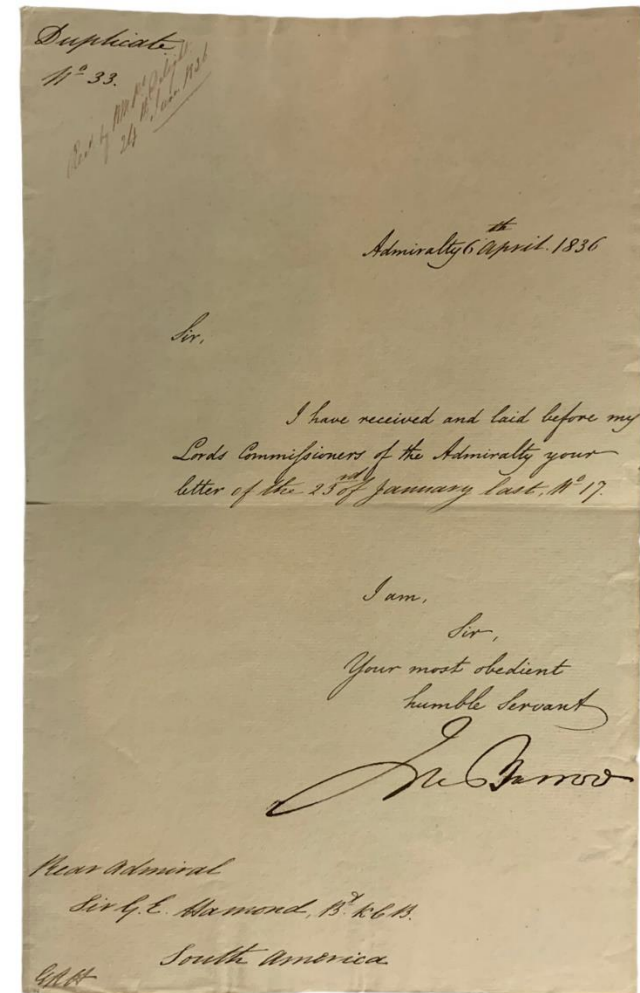 Duplicate
Nº 33.
24 June 1836
Admiralty 6th April. 1836
Sir,
I have received and laid before my
Lords Commiſsioners of the Admiralty your
letter of the 23rd of January last, Nº 17.
I am,
Sir,
Your most obedient
humble Servant
Jno Barrow
Rear Admiral
Sir G. E. Hamond, Bt. K C B.
South America